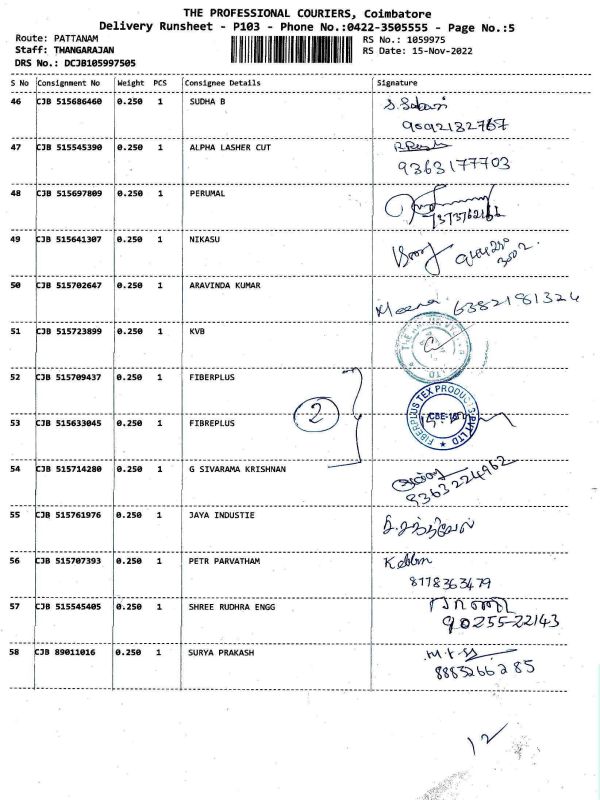 THE PROFESSIONAL COURIERS, Coimbatore
Delivery Runsheet - P103 - Phone No.:0422-3505555 - Page No.:5
Route: PATTANAM
RS No.: 1059975
Staff: THANGARAJAN
RS Date: 15-Nov-2022
DRS No.: DCJB105997505
S No Consignment No Weight PCS Consignee Details Signature
46 CJB 515686460 0.250 1 SUDHA B
9092182767
47 CJB 515545390 0.250 1 ALPHA LASHER CUT
9363177703
48 CJB 515697809 0.250 1 PERUMAL
49 CJB 515641307 0.250 1 NIKASU
50 CJB 515702647 0.250 1 ARAVINDA KUMAR
Meena 6382181324
51 CJB 515723899 0.250 1 KVB
52 CJB 515709437 0.250 1 FIBERPLUS
FIBERPLUS TEX PRODUCTS PVT LTD
2
53 CJB 515633045 0.250 1 FIBREPLUS
54 CJB 515714280 0.250 1 G SIVARAMA KRISHNAN
9363224962
55 CJB 515761976 0.250 1 JAYA INDUSTIE
56 CJB 515707393 0.250 1 PETR PARVATHAM
8178363479
57 CJB 515545405 0.250 1 SHREE RUDHRA ENGG
90255-22143
58 CJB 89011016 0.250 1 SURYA PRAKASH
8883266285
12